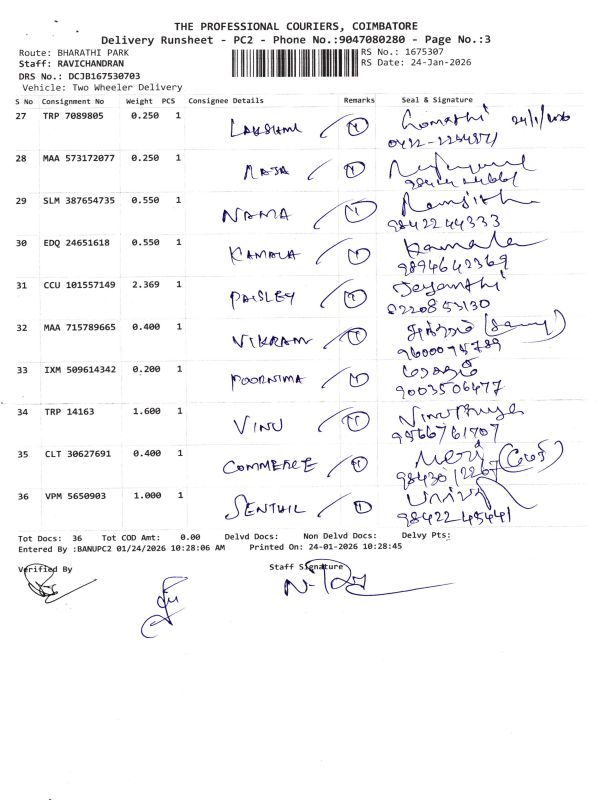 THE PROFESSIONAL COURIERS, COIMBATORE
Delivery Runsheet - PC2 - Phone No.:9047080280 - Page No.:3
Route: BHARATHI PARK RS No.: 1675307
Staff: RAVICHANDRAN RS Date: 24-Jan-2026
DRS No.: DCJB167530703
Vehicle: Two Wheeler Delivery
S No Consignment No Weight PCS Consignee Details Remarks Seal & Signature
27 TRP 7089805 0.250 1 LAKSHMI 1 Gomathi 24/1/2026
28 MAA 573172077 0.250 1 RAJA 1
29 SLM 387654735 0.550 1 NAMA 1 Ranjith
9842244333
30 EDQ 24651618 0.550 1 KAMALA 1 Kamala
9894642369
31 CCU 101557149 2.369 1 PAISLEY 1 Jeyanthi
32 MAA 715789665 0.400 1 VIKRAM 1
9600095789
33 IXM 509614342 0.200 1 POORNIMA 1
9003506477
34 TRP 14163 1.600 1 VINU 1
9566761707
35 CLT 30627691 0.400 1 COMMERCE 1
36 VPM 5650903 1.000 1 SENTHIL 1
9842245441
Tot Docs: 36 Tot COD Amt: 0.00 Delvd Docs: Non Delvd Docs: Delvy Pts:
Entered By :BANUPC2 01/24/2026 10:28:06 AM Printed On: 24-01-2026 10:28:45
Verified By Staff Signature